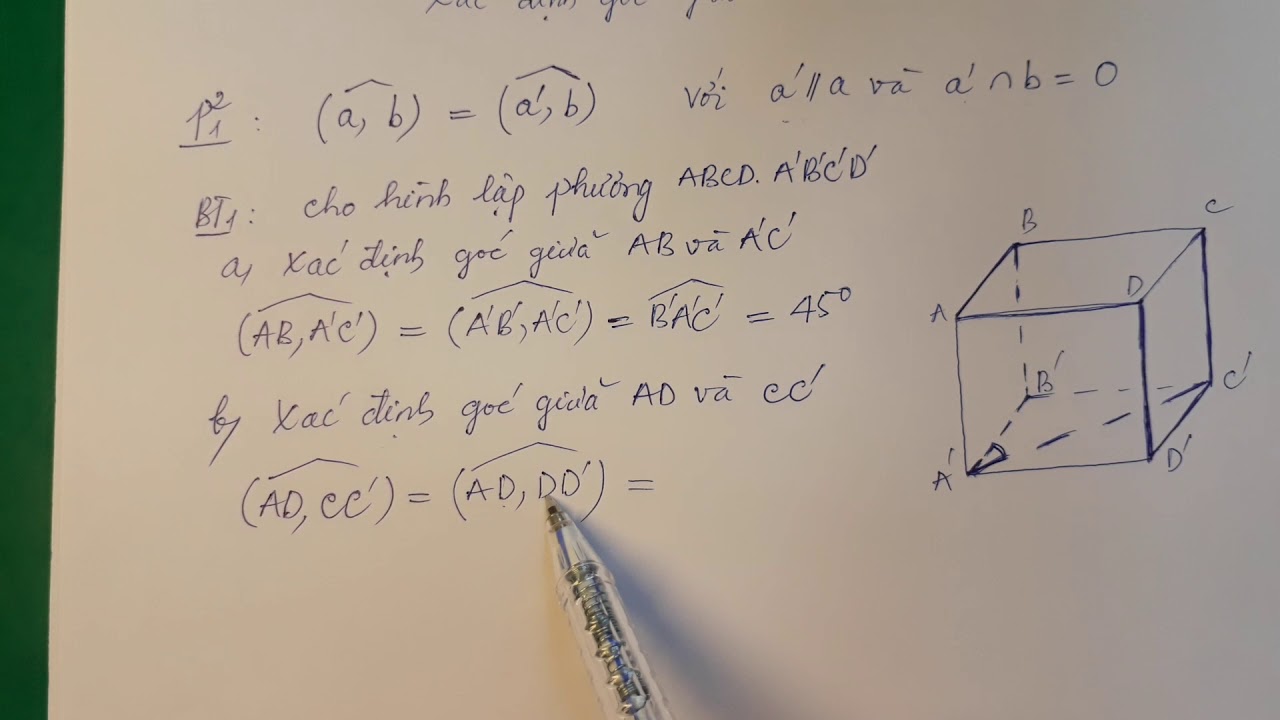 Xác định góc
P²₁ : (a, b) = (a', b) với a' // a và a' ∩ b = O
BT₁ : Cho hình lập phương ABCD. A'B'C'D'
a, Xác định góc giữa AB và A'C'
(AB, A'C') = (A'B', A'C') = B'A'C' = 45°
b, Xác định góc giữa AD và CC'
(AD, CC') = (AD, DD') =
B
C
A
D
B'
C'
A'
D'